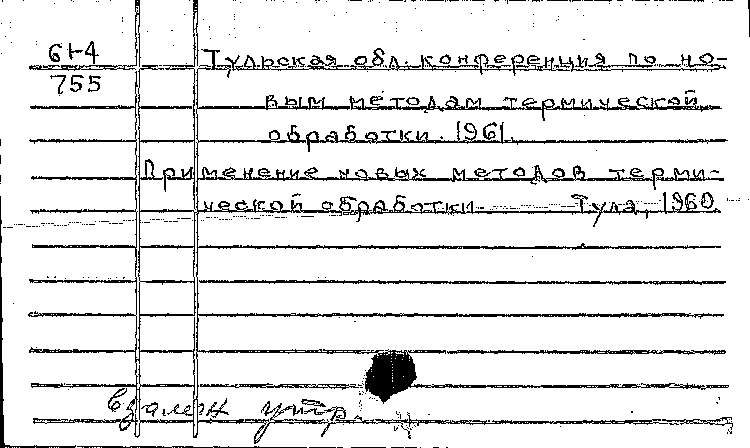 61-4
755
Тульская обл. конференция по но-
вым методам термической
обработки. 1961.
Применение новых методов терми-
ческой обработки. Тула, 1960.
взамен утр.